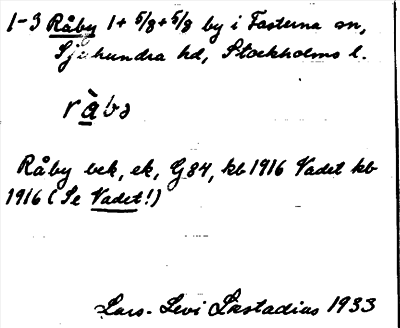 1-3 Råby 1 + 5/8 + 5/8 by i Fasterna sn,
Sjuhundra hd, Stockholms l.
rå̀bə
Råby bek, ek, G84, kb 1916 Vadet kb
1916 (Se Vadet!)
Lars-Levi Læstadius 1933